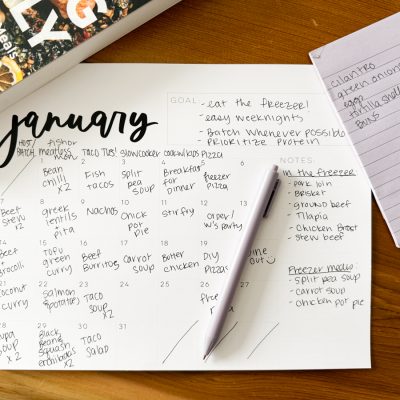 Meal
january
GOAL:
- eat the freezer!
- easy weeknights
- Batch whenever possible
- Prioritize protein
cilantro
green onion
eggs
tortilla shell
Buns
HOT/ BATCH
fish or meatless mon
TACO TUES!
slow cooker
cook w/ kids
PIZZA!
1
2
3
4
5
6
Bean chili x2
Fish tacos
split pea soup
Breakfast for dinner
freezer pizza
8
9
10
11
12
13
Beef stew x2
green lentils + pita
Nachos
chick pot pie
stir fry
w's party
15
16
17
18
19
Beef + brocoli
TOFU green curry
Beef Burritos
carrot soup
Butter chicken
DIY pizzas
Dine out
22
23
26
27
coconut curry
salmon + potatoes
TACO soup
28
29
30
31
x2
Black Beans squash enchiladas x2
TACO salad
NOTES:
in the freezer
- pork loin
- Brisket
- ground beef
- Tilapia
- chicken Breast
- stew beef
Freezer meals
- split pea soup
- carrot soup
- chicken pot pie